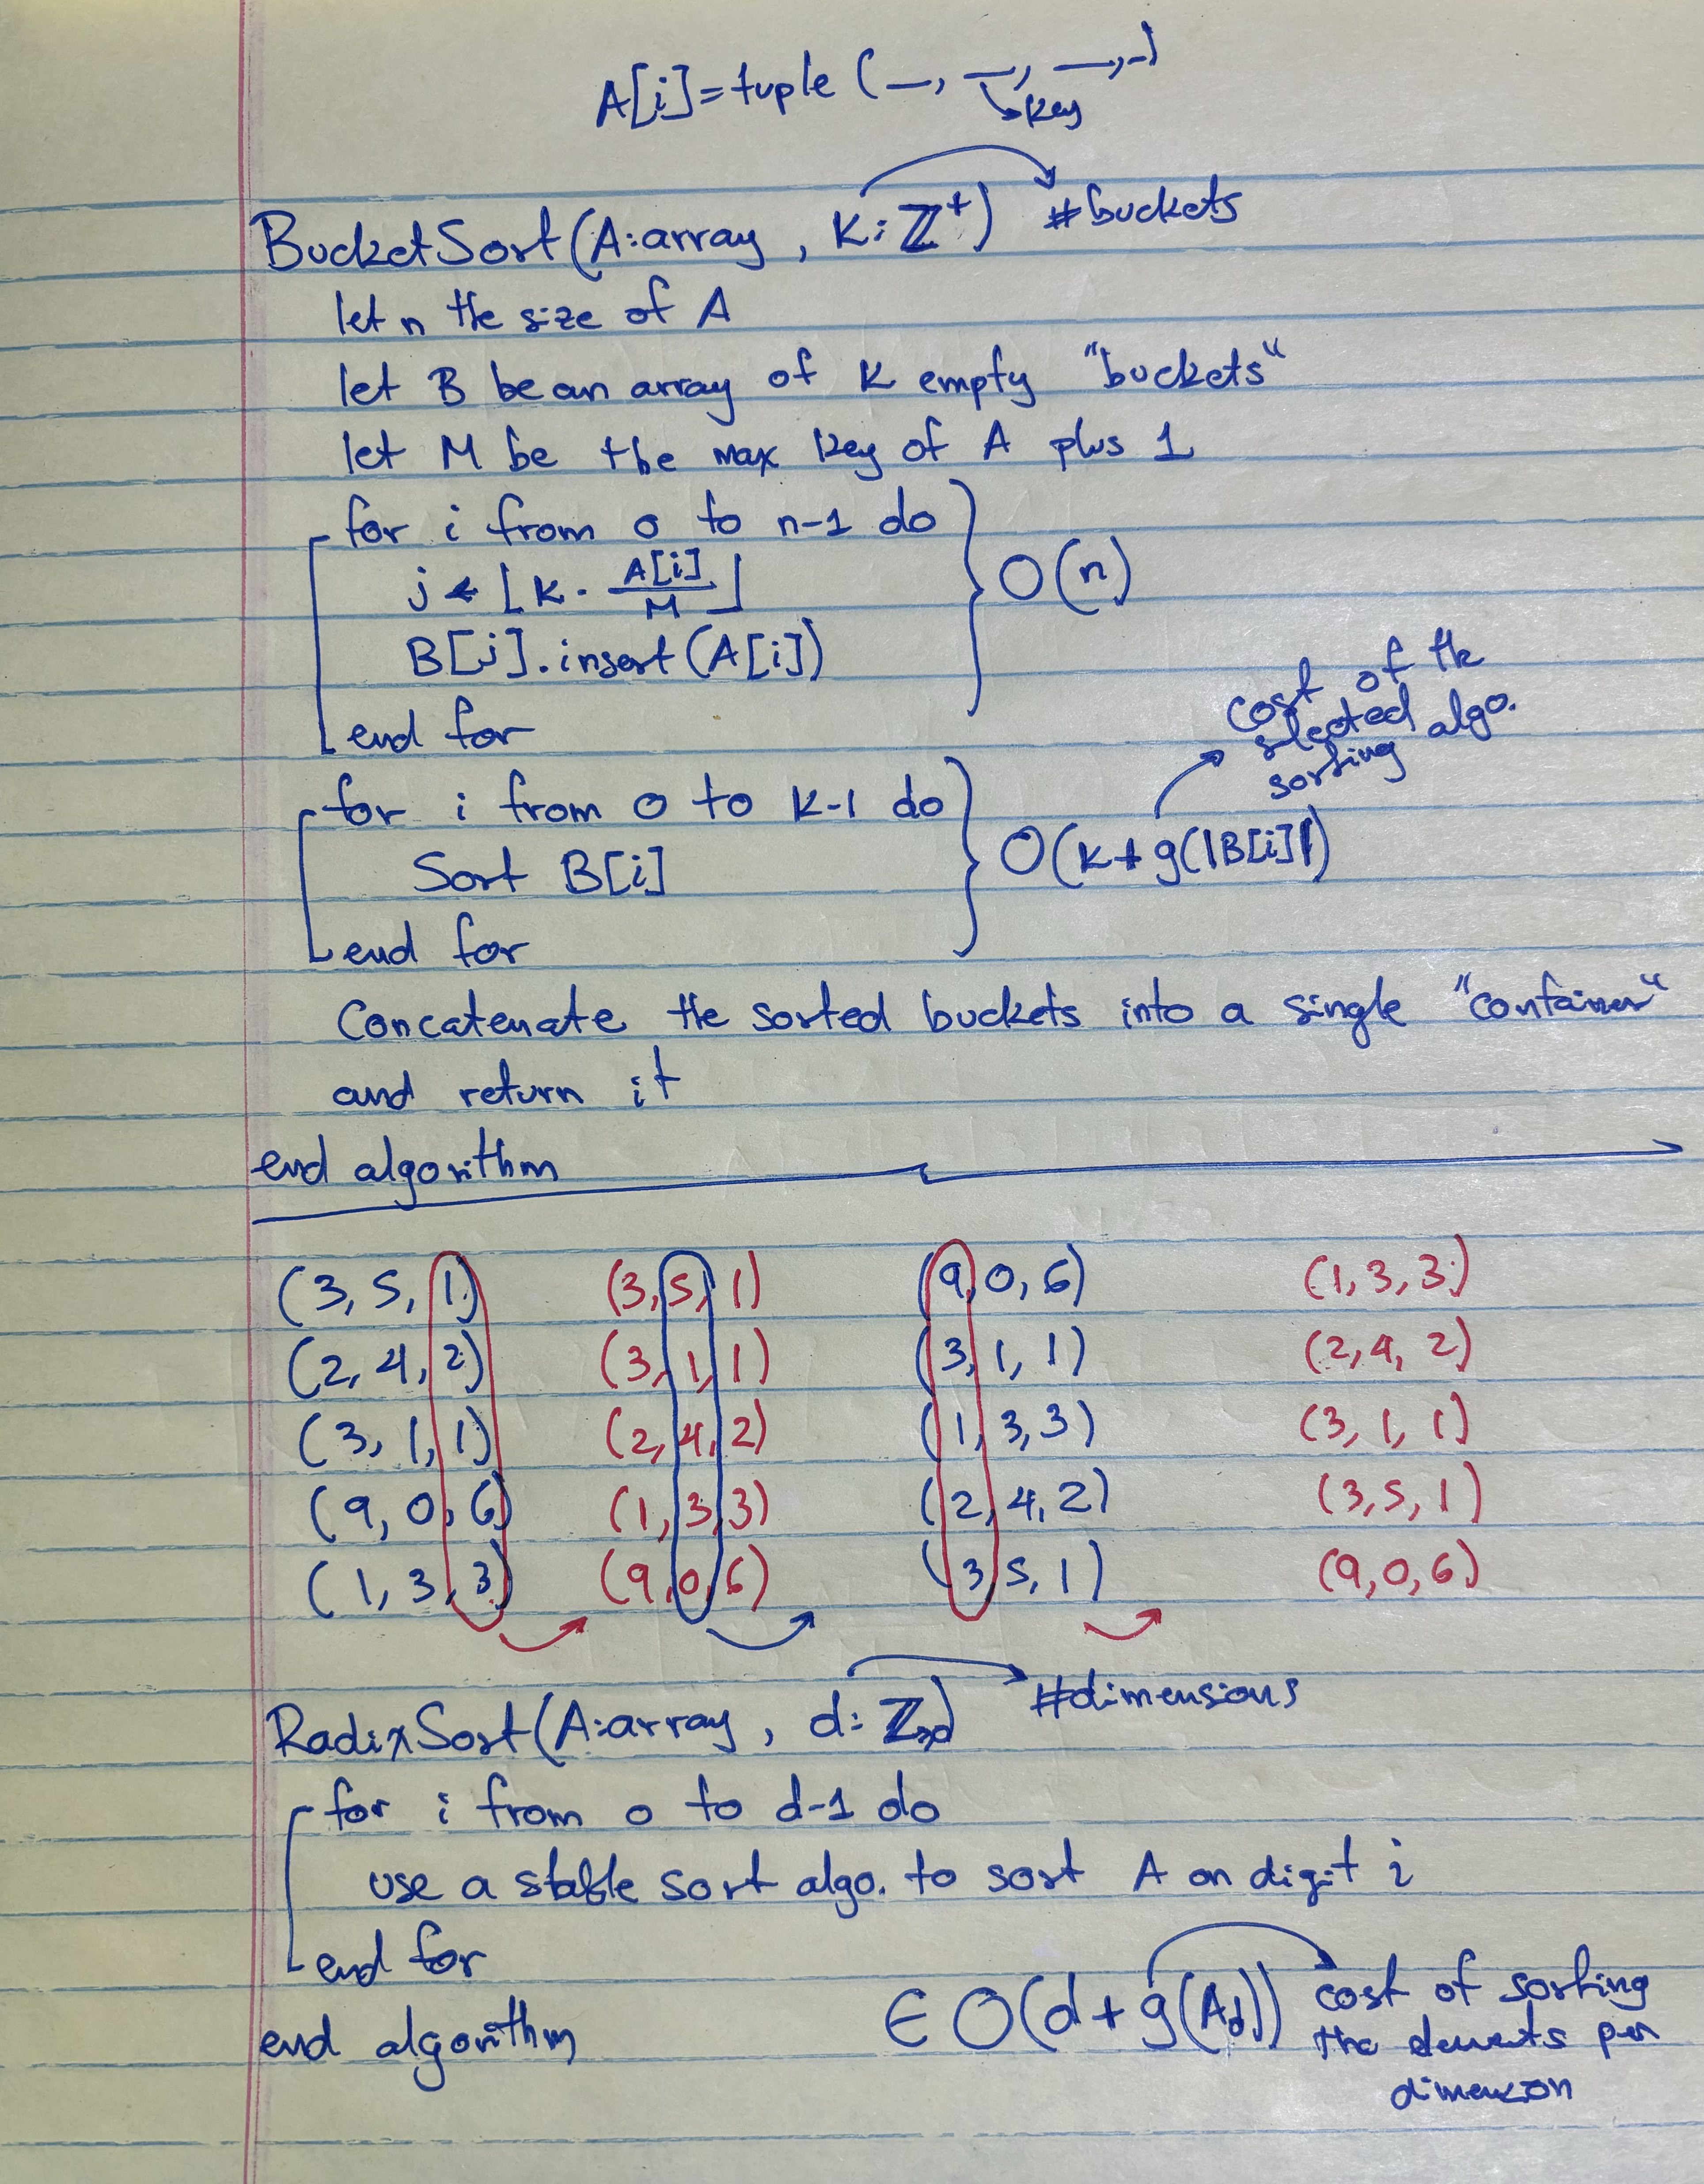 A[i]=tuple (_, _, _,_)
key
BucketSort(A:array, K:ℤ⁺) #buckets
let n the size of A
let B be an array of K empty "buckets"
let M be the max key of A plus 1
for i from 0 to n-1 do
j ← ⌊K · A[i]/M⌋
O(n)
B[j].insert(A[i])
end for
cost of the
slected algo.
sorting
for i from 0 to K-1 do
Sort B[i]
O(K+g(|B[i]|)
end for
Concatenate the sorted buckets into a single "container"
and return it
end algorithm
(3, 5, 1) (3, 5, 1) (9, 0, 6) (1, 3, 3)
(2, 4, 2) (3, 1, 1) (3, 1, 1) (2, 4, 2)
(3, 1, 1) (2, 4, 2) (1, 3, 3) (3, 1, 1)
(9, 0, 6) (1, 3, 3) (2, 4, 2) (3, 5, 1)
(1, 3, 3) (9, 0, 6) (3, 5, 1) (9, 0, 6)
RadixSort(A:array, d: #dimensions
for i from 0 to d-1 do
use a stable sort algo. to sort A on digit i
end for
∈ O(d+g(A_d)) cost of sorting
end algorithm
the elements per
dimension